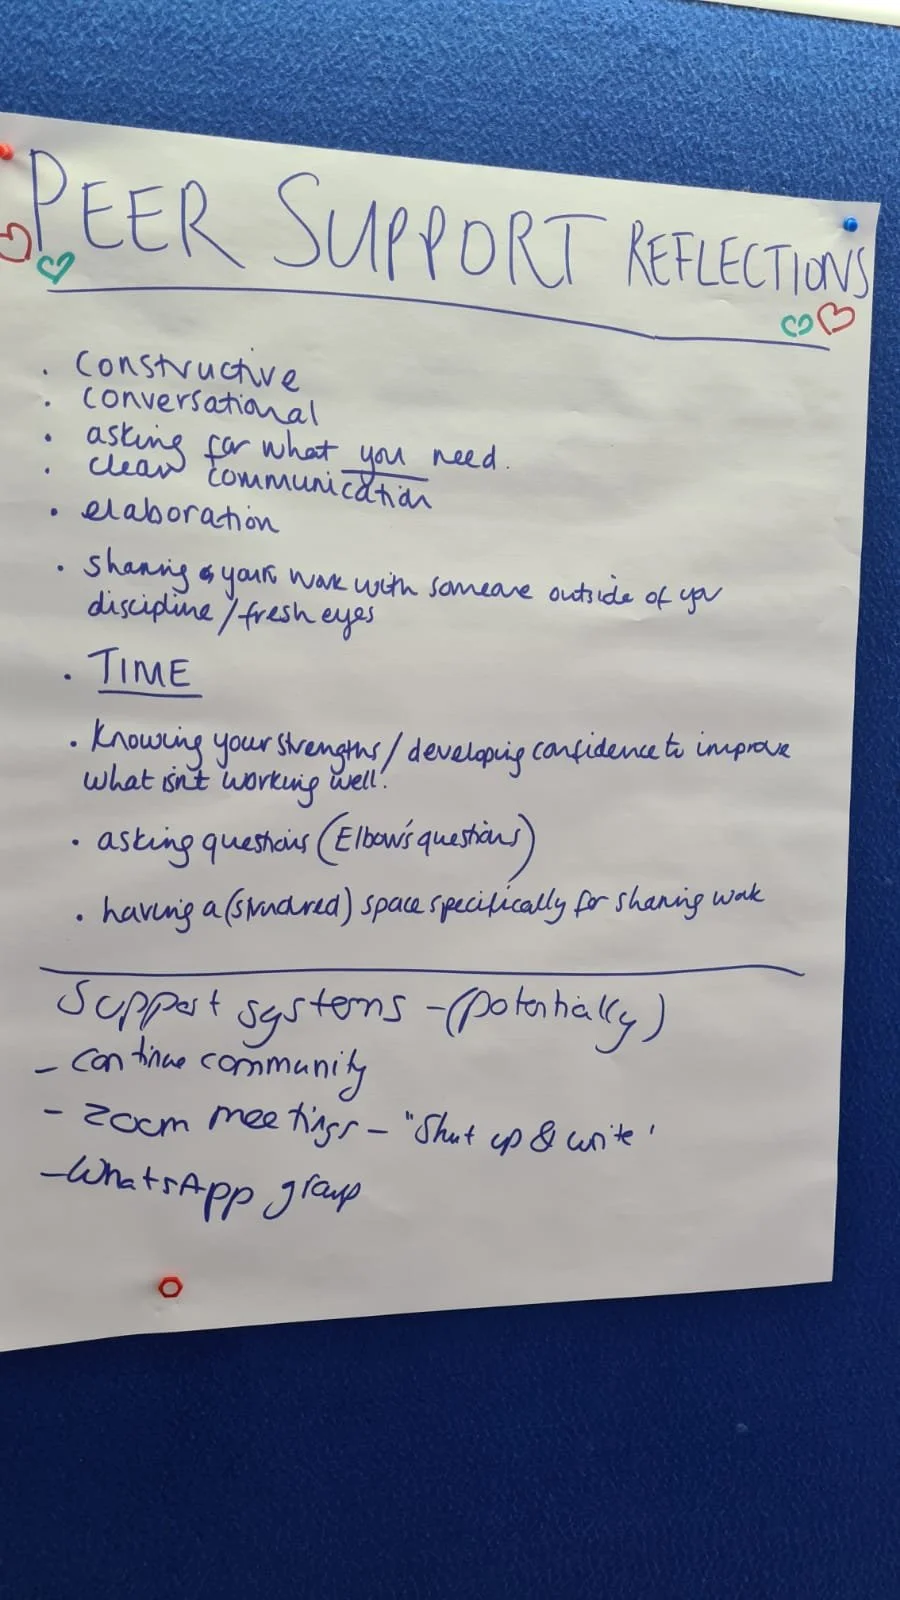 PEER SUPPORT REFLECTIONS
. constructive
. conversational
. asking for what you need.
. clear communication
. elaboration
. sharing your work with someone outside of your
discipline / fresh eyes
. TIME
. Knowing your strengths / developing confidence to improve
what isn't working well.
. asking questions (Elbow's questions)
. having a (structured) space specifically for sharing work
Support systems - (potentially)
- continue community
- zoom meetings - "Shut up & write'
- WhatsApp group